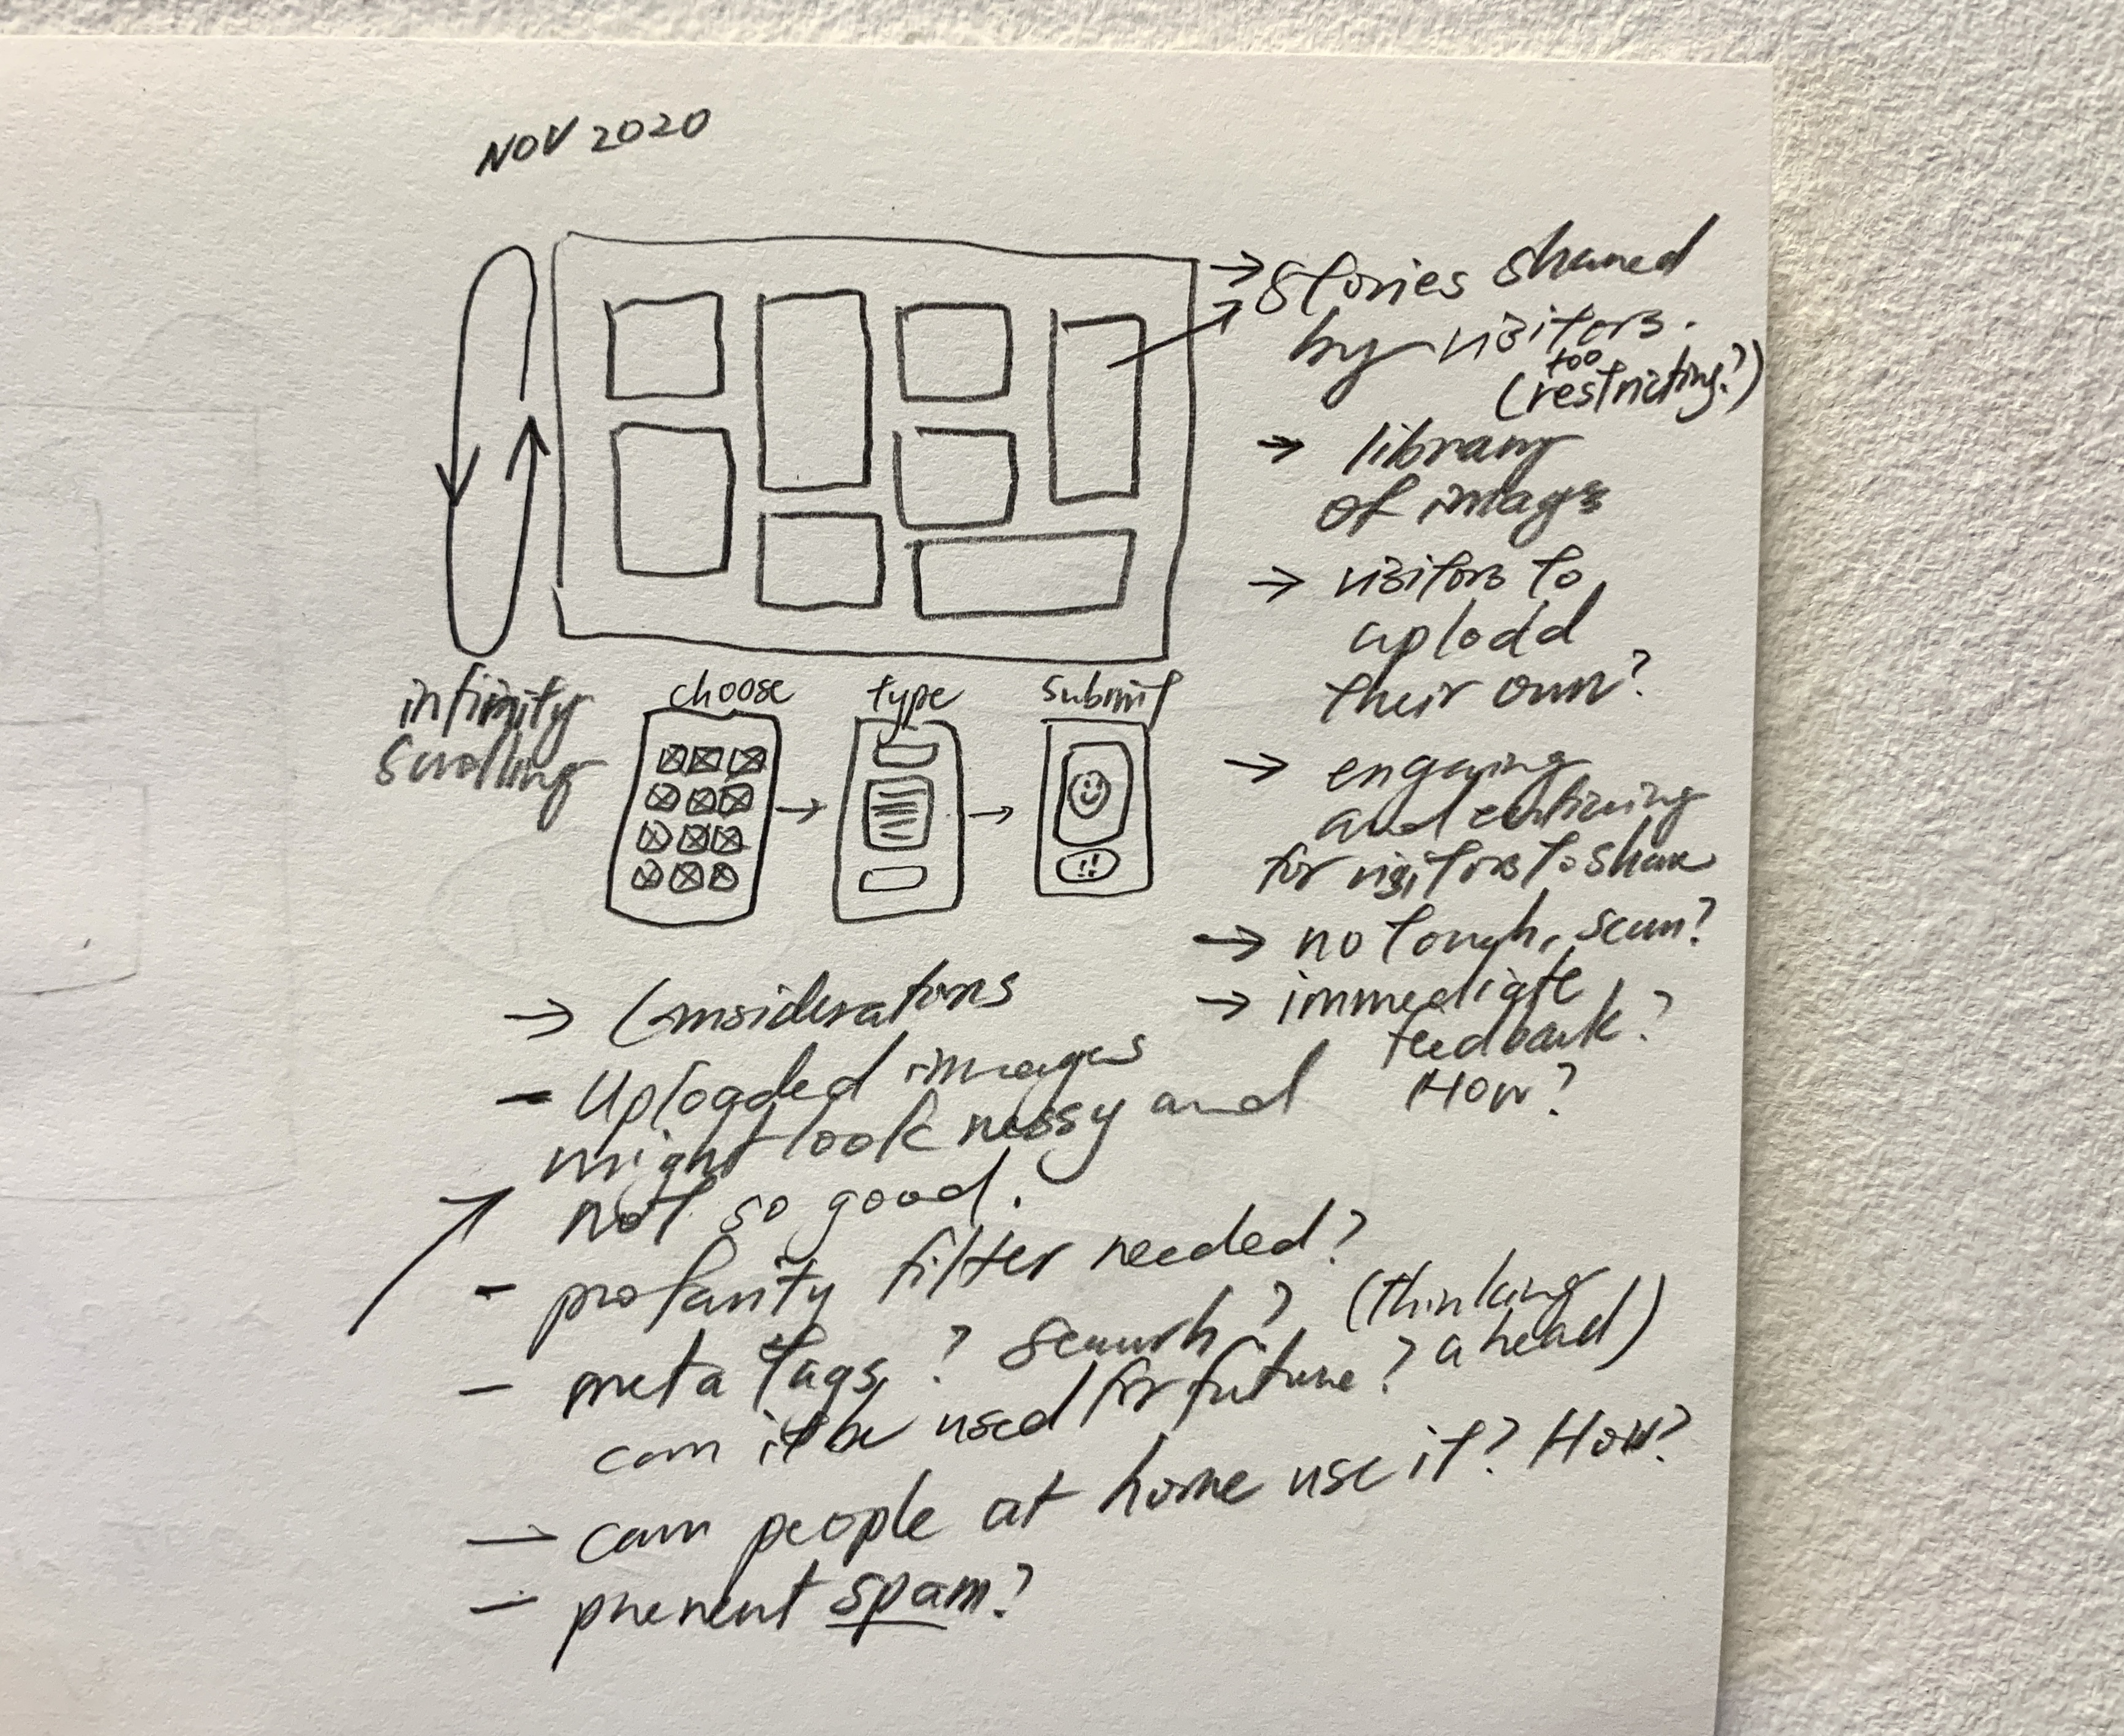 NOV 2020
→ Stories shared
by visitors.
(too restricting?)
→ library
of images
→ visitors to
upload
their own?
→ engaging
and enticing
for visitors to share
→ no touch, scan?
→ immediate
feedback?
How?
infinity
scrolling
choose → type → submit
!!
→ Considerations
- Uploaded images
might look messy and
not so good.
- profanity filter needed?
- meta tags? search? (thinking
ahead)
can it be used for future?
- can people at home use it? How?
- prevent spam?